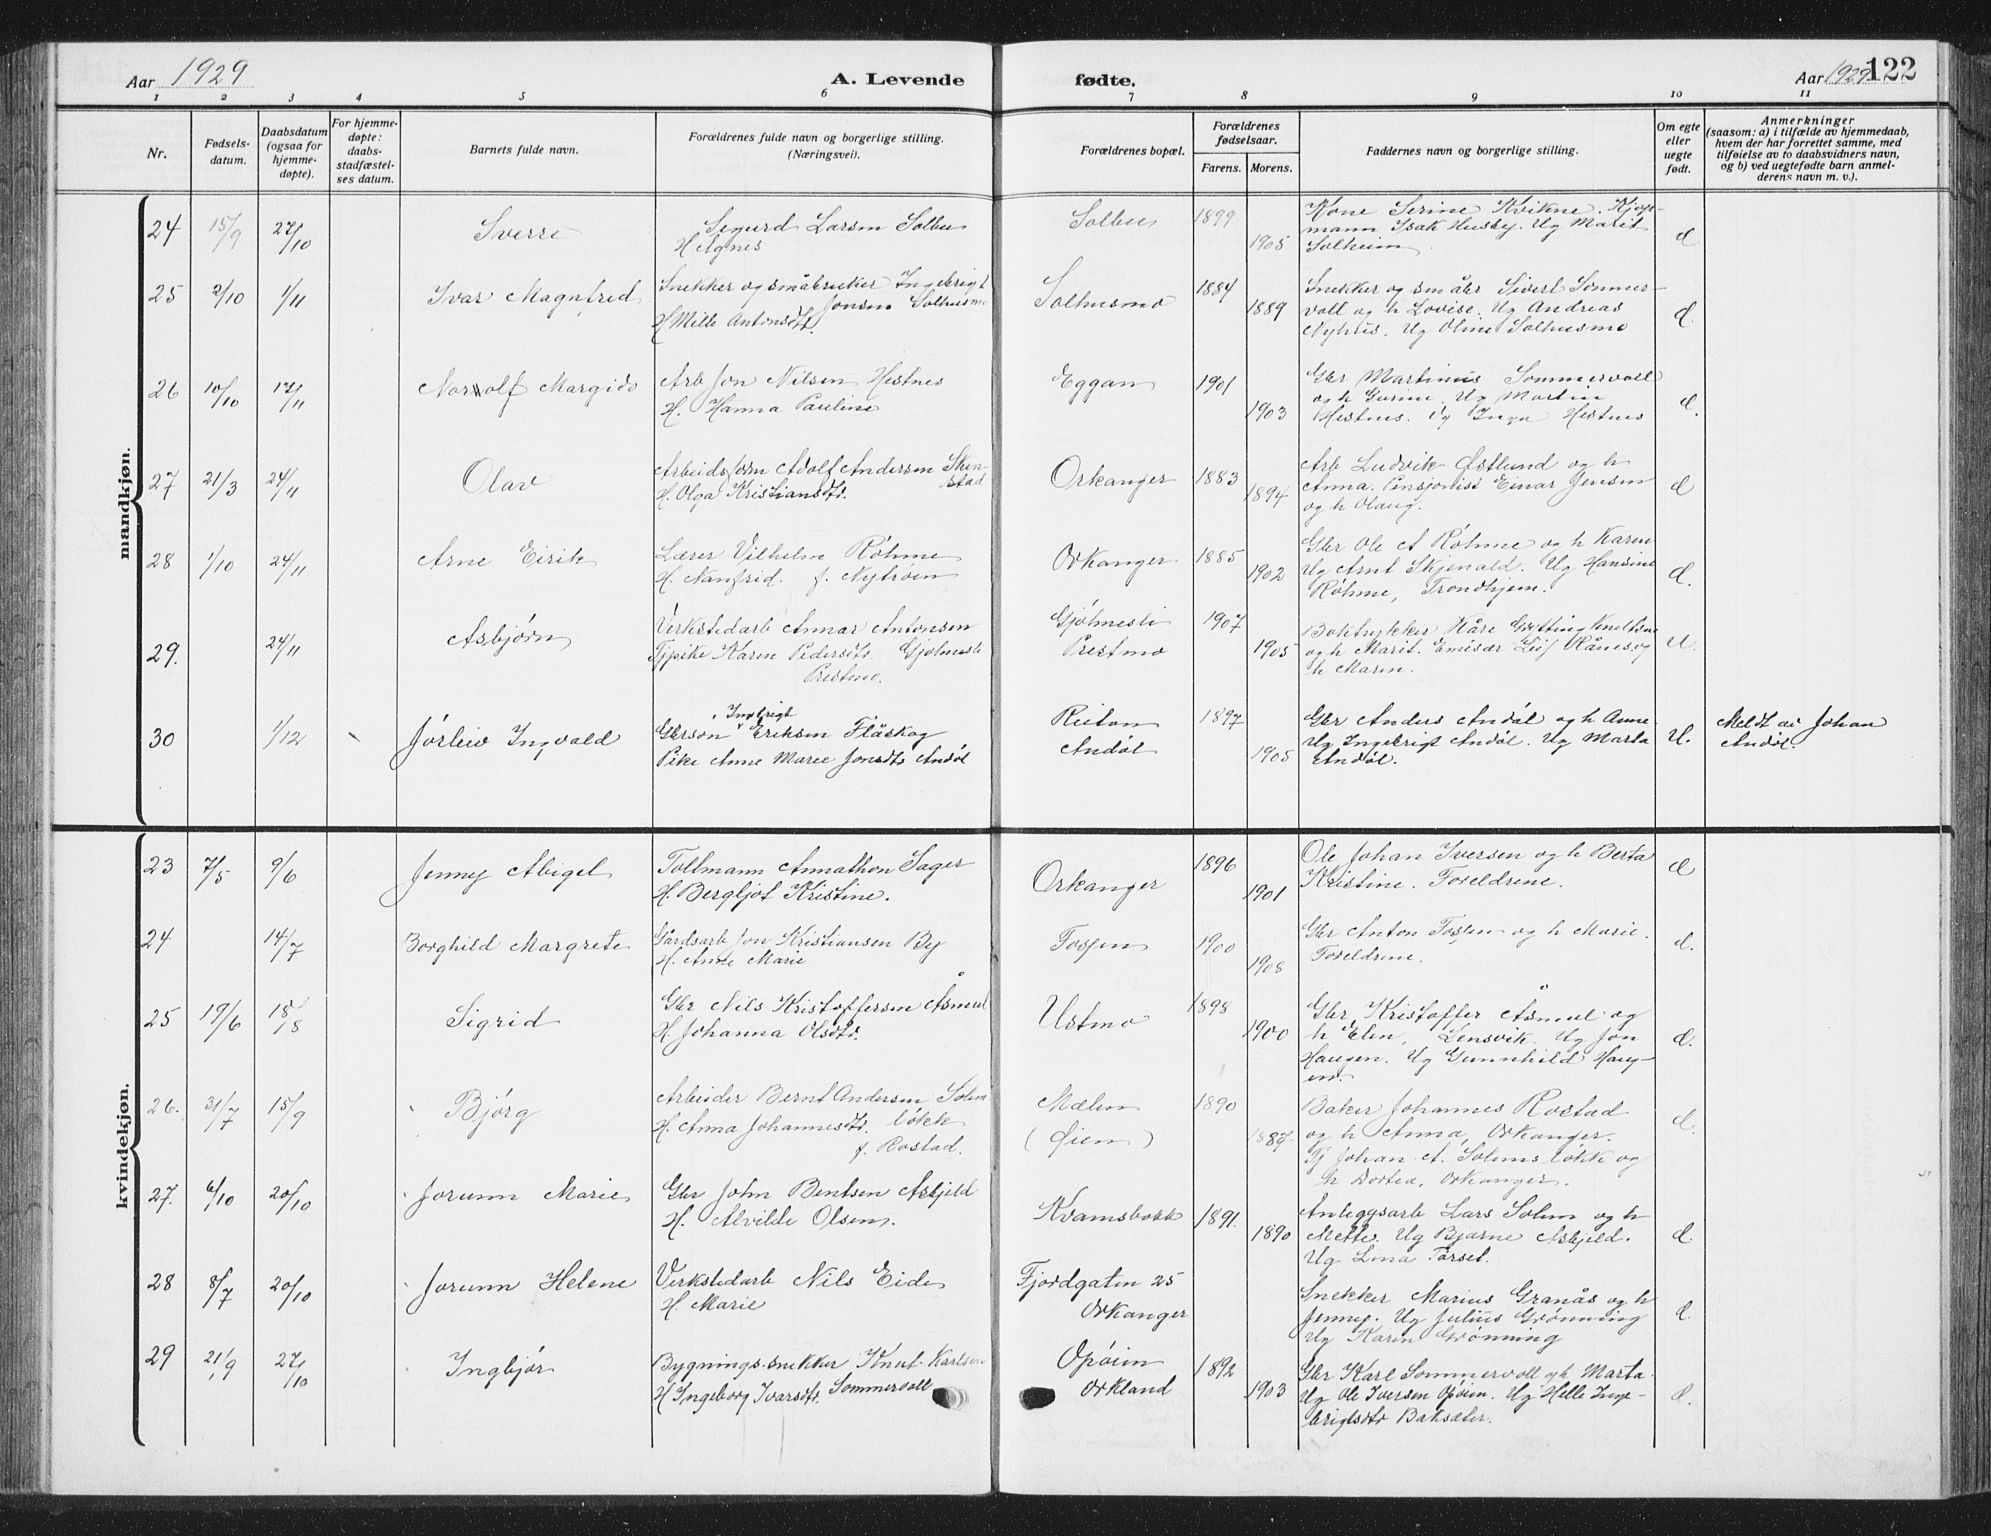 Aar 1929
A. Levende fødte.
Aar 1929
122
1 2 3 4 5 6 7 8 9 10 11
Nr.
Fødsels-
datum.
Daabsdatum
(ogsaa for
hjemme-
døpte).
For hjemme-
døpte:
daabs-
stadfæstel-
ses datum.
Barnets fulde navn.
Forældrenes fulde navn og borgerlige stilling.
(Næringsvei).
Forældrenes bopæl.
Forældrenes
fødselsaar.
Farens. Morens.
Faddernes navn og borgerlige stilling.
Om egte
eller
uegte
født.
Anmerkninger
(saasom: a) i tilfælde av hjemmedaab,
hvem der har forrettet samme, med
tilføielse av to daabsvidners navn,
og b) ved uegtefødte barn anmel-
derens navn m. v.).
mandkjøn.
24 15/9 27/10 Sverre
Sigurd Larsen Solbu
H. Agnes
Solbu 1899 1905
Kone Serine Kvikne. Kjøp-
mann Isak Husby. Ug Marit
Solheim
e
25 2/10 1/11 Ivar Magnfred
Snekker og småbruker Ingebrigt
Jonsen Solhusmo
H Mille Antonsdtr.
Solhusmo 1884 1889
Snekker og småbr Sivert Sommer-
voll og h Lovise. Ug Andreas
Nyhus. Ug Oline Solhusmo
e.
26 10/10 17/11 Margido
Arb Jon Nilsen Hestnes
H. Hanna Pauline
Eggan 1901 1903
Gbr Martinus Sommervoll
og h Gurine. Ug Martin
Hestnes. Ug Inga Hestnes
e.
27 21/3 24/11 Olav
Arbeidsform Adolf Andersen Skin-
stad
H. Olga Kristiansdtr.
Orkanger 1883 1894
Arb Ludvik Østlund og h
Anna. Pensjonist Einar Jensen
og h Olaug.
e
28 1/10 24/11 Arne Eirik
Lærer Vilhelm Röhme
H. Nanfrid. f. Nytrøen
Orkanger 1885 1902
Gbr Ole A Röhme og h Karen
Ug Arnt Skjenald. Ug Hansine
Röhme, Trondhjem.
e.
29. 24/11 Asbjørn
Verkstedarb Annar Antonsen
Tjpike Karen Pedersdtr. Gjölmesli
Prestmo.
Gjölmesli
Prestmo
1907 1905
Boktrykker Kåre Grötting
og h Marit. Emisær Leif Rånes og
h Maren.
U.
30 1/12 Jörleiv Ingvald
Ingebrigt
Gbrsøn Eriksen Flåskog
Pike Anne Marie Jonsdtr Andöl
Reitan
Andöl
1897 1905
Gbr Anders Andöl og h Anne
Ug Ingebrigt Andöl. Ug Marta
Andöl.
U.
Meldt av Johan
Andöl.
kvindekjøn.
23 7/5 9/6 Jenny Abigel
Tollmann Annathon Sager
H. Bergljot Kristine.
Orkanger 1896 1901
Ole Johan Iversen og h Berta
Kristine. Foreldrene.
e
24 14/7 Borghild Margrete
Gårdsarb Jon Kristiansen By
H. Anne Marie
Fossen 1900 1908
Gbr Anton Fossen og h Marie.
Foreldrene.
e.
25 19/6 18/8 Sigrid
Gbr Nils Kristoffersen Åsmul
H Johanna Olsdtr.
Ustmo 1898 1900
Gbr Kristoffer Åsmul og
h Elen, Lensvik. Ug Jon
Haugen. Ug Gunnhild Haug-
en.
e.
26. 31/7 15/9 Bjørg
Arbeider Bernt Andersen Solem
H. Anna Johannesdtr. løkk
f. Rostad.
Mælen
(Øien)
1890 1887
Baker Johannes Rostad
og h Anna, Orkanger.
Tj Johan A. Solemsløkk og
h Dortea, Orkanger.
e.
27. 6/10 20/10 Jorunn Marie
Gbr John Bentsen Askjeld
H. Alvilde Olsen.
Kvamsbakk 1891. 1890
Anleggsarb Lars Solem og h
Mette. Ug Bjarne Askjeld.
Ug Lina Torset.
e.
28 8/7 20/10 Jorunn Helene
Verkstedarb Nils Eide
H. Marie
Fjordgaten 25
Orkanger
Snekker Marius Granås og h
Jenny. Ug Julius Grønning
Ug Karen Grønning
e.
29 21/9 27/10 Ingbjør
Bygnings-snekker Knut Karlsen
Sommervoll
H Ingeborg Ivarsdtr.
Opöien
Orkland
1892 1903
Gbr Karl Sommervoll og h Marta.
Ug Ole Iversen Opöien. Ug Helle Inge-
brigtsdtr Baksæter.
e.